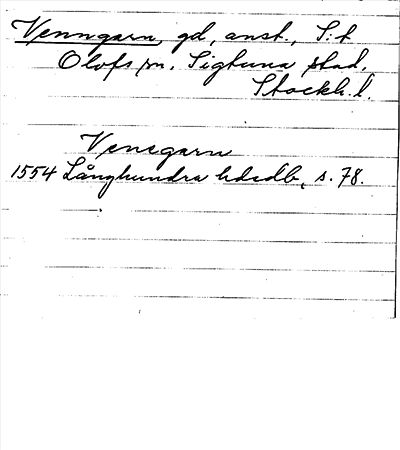 Venngarn, gd, anst., S:t
Olofs sn, Sigtuna stad,
Stockh. l.
Venegarn
1554 Långhundra hdsdb, s. 78.